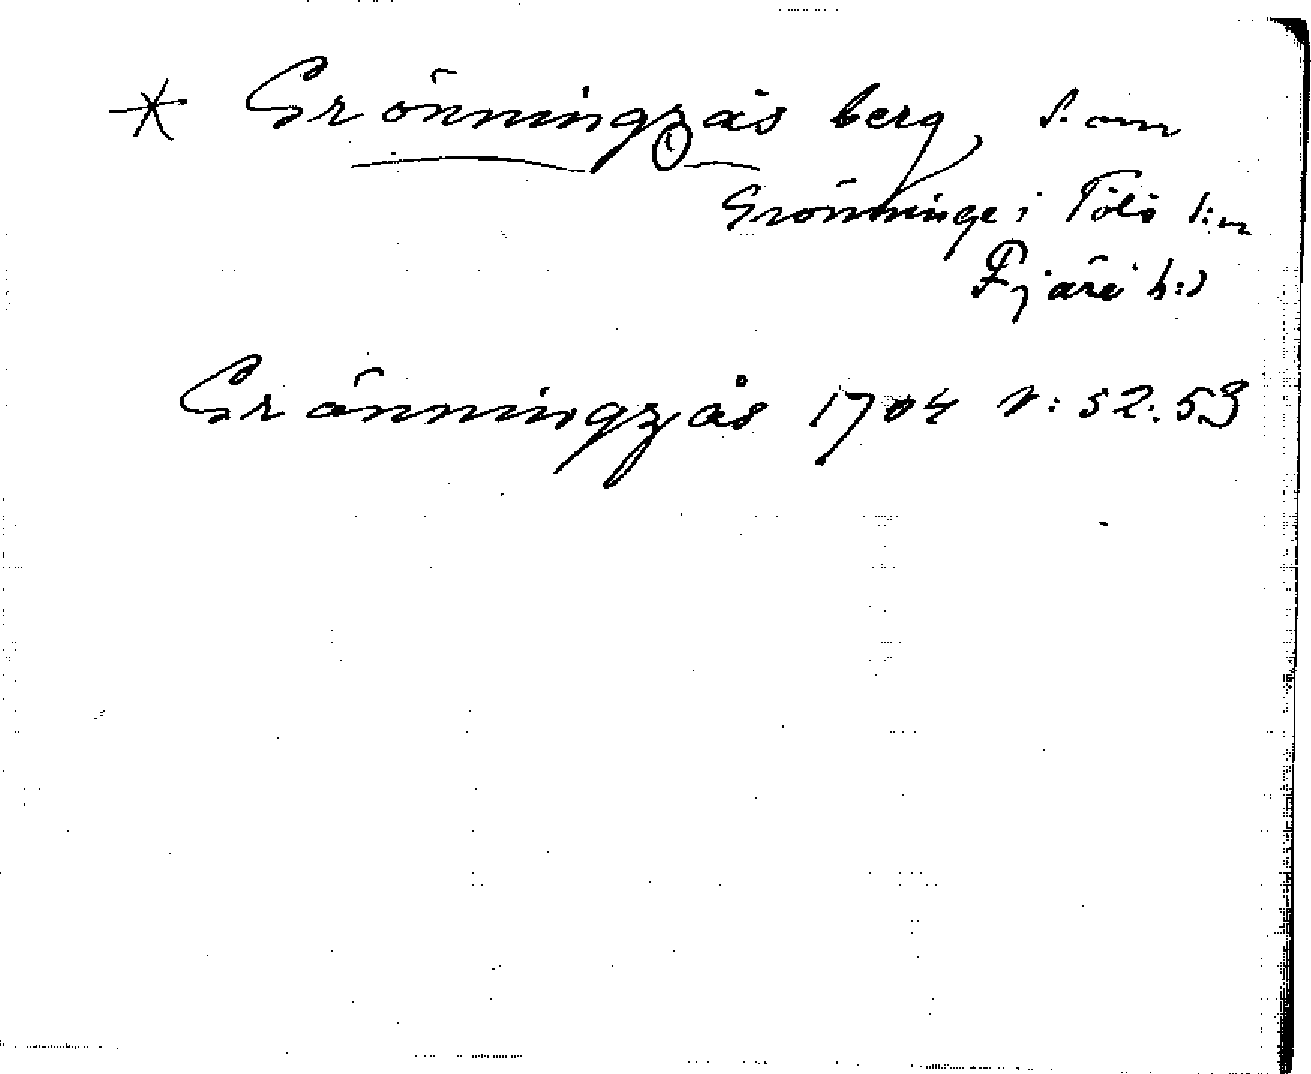 * Grönningzås berg, s. om
Grönninge i Tölö s:n
Fjäre h:d
Grönningzås 1704 n: 52. 53